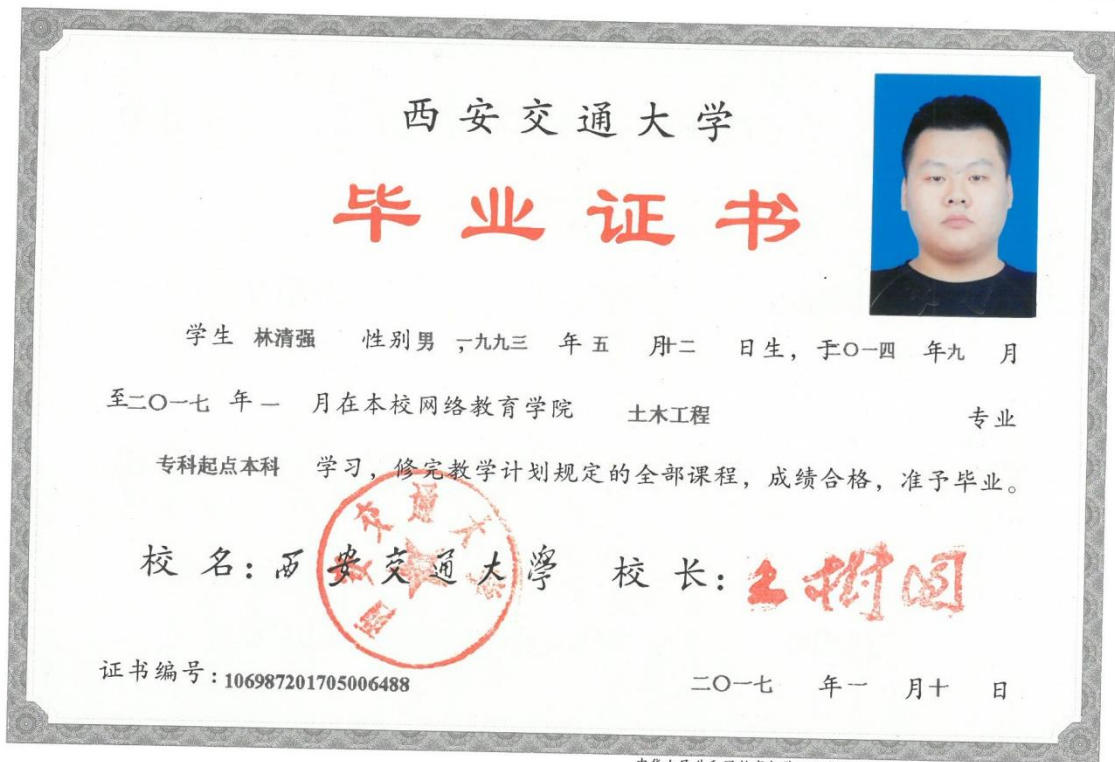 西安交通大学
毕业证书
学生 林清强 性别 男 ，一九九三 年 五 月 十二 日生，于二〇一四 年 九 月
至二〇一七 年 一 月在本校网络教育学院 土木工程 专业
专科起点本科 学习，修完教学计划规定的全部课程，成绩合格，准予毕业。
校 名：西安交通大學 校 长：王树国
西安交通大学
证书编号：106987201705006488 二〇一七 年 一 月 十 日